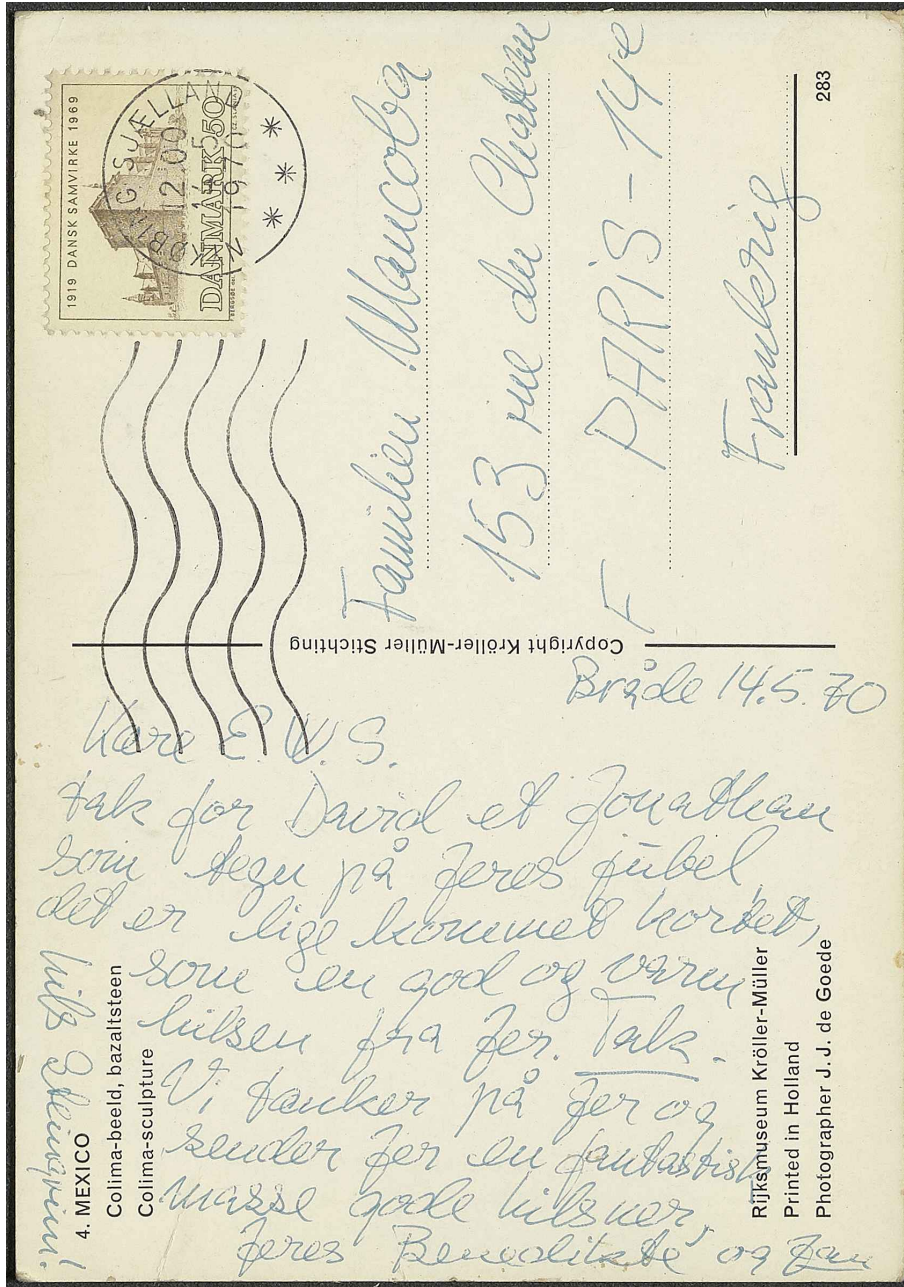 1919 DANSK SAMVIRKE 1969
DANMARK 50
N KØBING SJÆLLAND
12.00
14.5
1970
Familien Mancoba
153 rue du Chateau
F PARIS-14e
Frankrig
283
Copyright Kröller-Müller Stichting
Bråde 14.5.70
Kære E. W. S.
tak for David et Jonathan
som tegn på Jeres jubel,
det er lige kommet kortet,
som en god og varm
hilsen fra Jer. Tak.
Vi tænker på Jer og
sender Jer en fantastisk
masse gode hilsner,
Jeres Benedikte og Jan
hils
4. MEXICO
Colima-beeld, bazaltsteen
Colima-sculpture
Rijksmuseum Kröller-Müller
Printed in Holland
Photographer J. J. de Goede